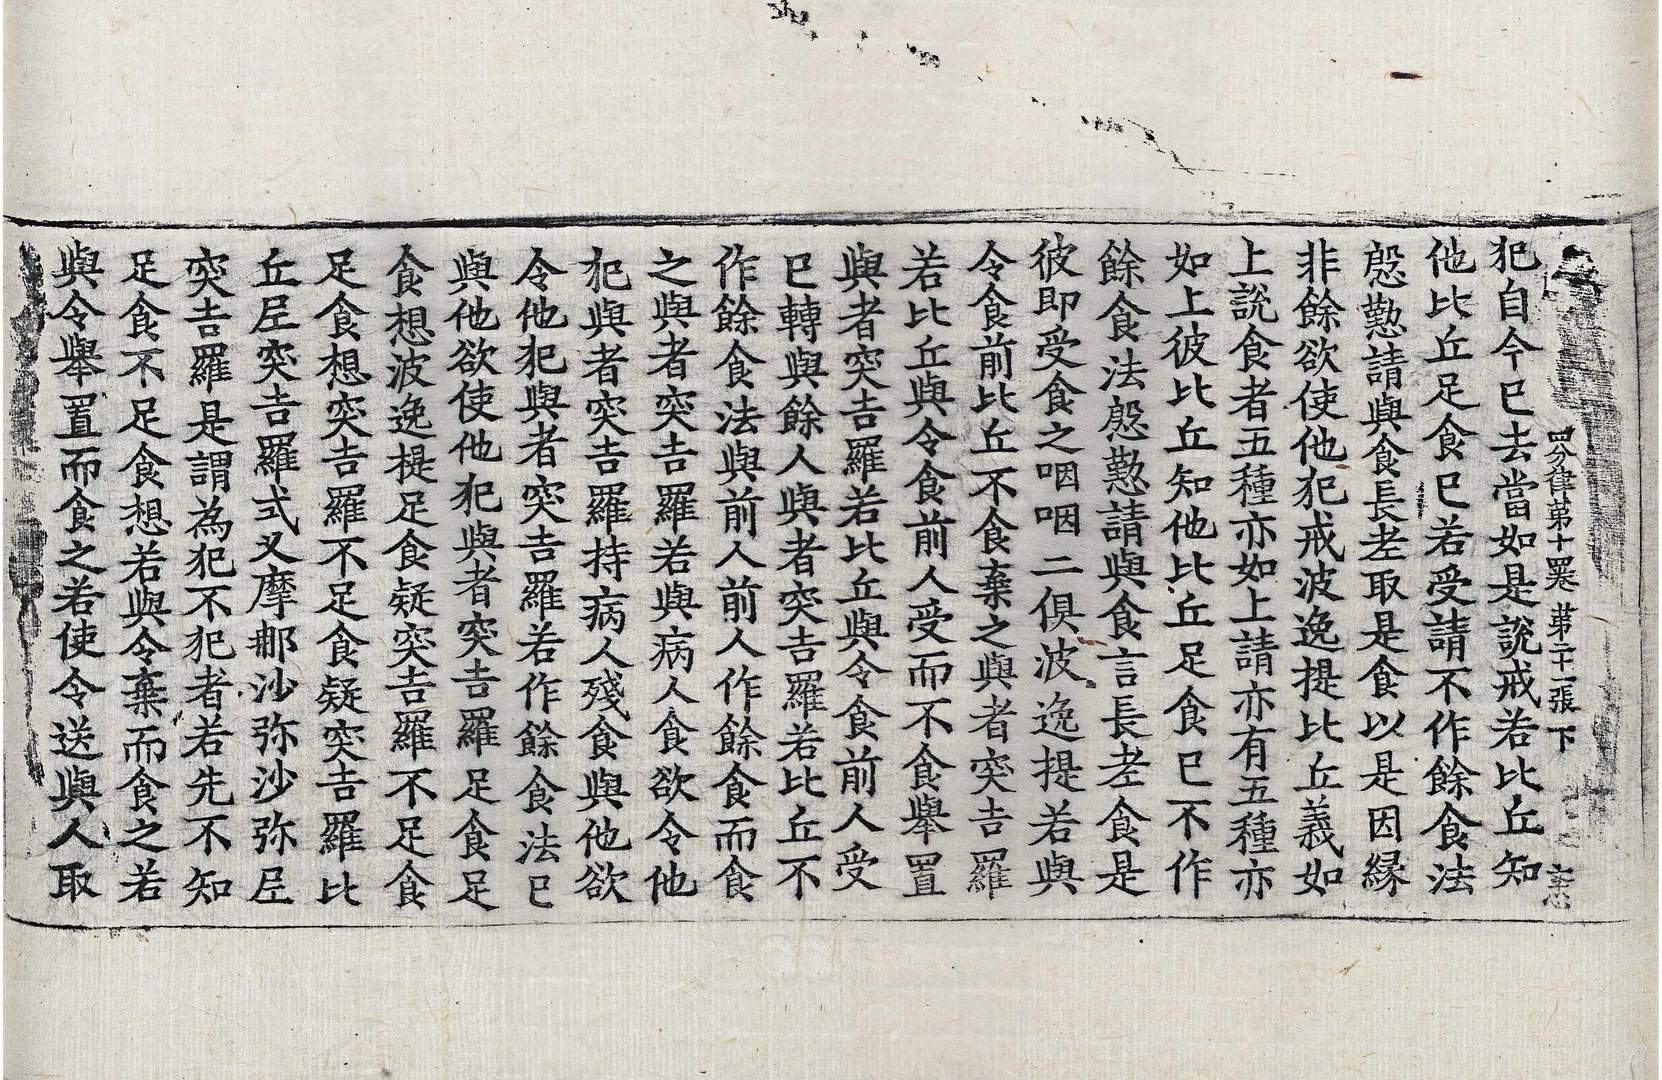 四分律第十四卷 第二十一張 下
犯自今已去當如是說戒若比丘知
他比丘足食已若受請不作餘食法
慇懃請與食長老取是食以是因緣
非餘欲使他犯戒波逸提比丘義如
上說食者五種亦如上請亦有五種亦
如上彼比丘知他比丘足食已不作
餘食法慇懃請與食言長老食是
彼即受食之咽咽二俱波逸提若與
令食前比丘不食棄之與者突吉羅
若比丘與令食前人受而不食舉置
與者突吉羅若比丘與令食前人受
已轉與餘人與者突吉羅若比丘不
作餘食法與前人前人作餘食而食
之與者突吉羅若與病人食欲令他
犯與者突吉羅持病人殘食與他欲
令他犯與者突吉羅若作餘食法已
與他欲使他犯與者突吉羅足食足
食想波逸提足食疑突吉羅不足食
足食想突吉羅不足食疑突吉羅比
丘尼突吉羅式叉摩那沙弥沙弥尼
突吉羅是謂為犯不犯者若先不知
足食不足食想若與令棄而食之若
與令舉置而食之若使令送與人取